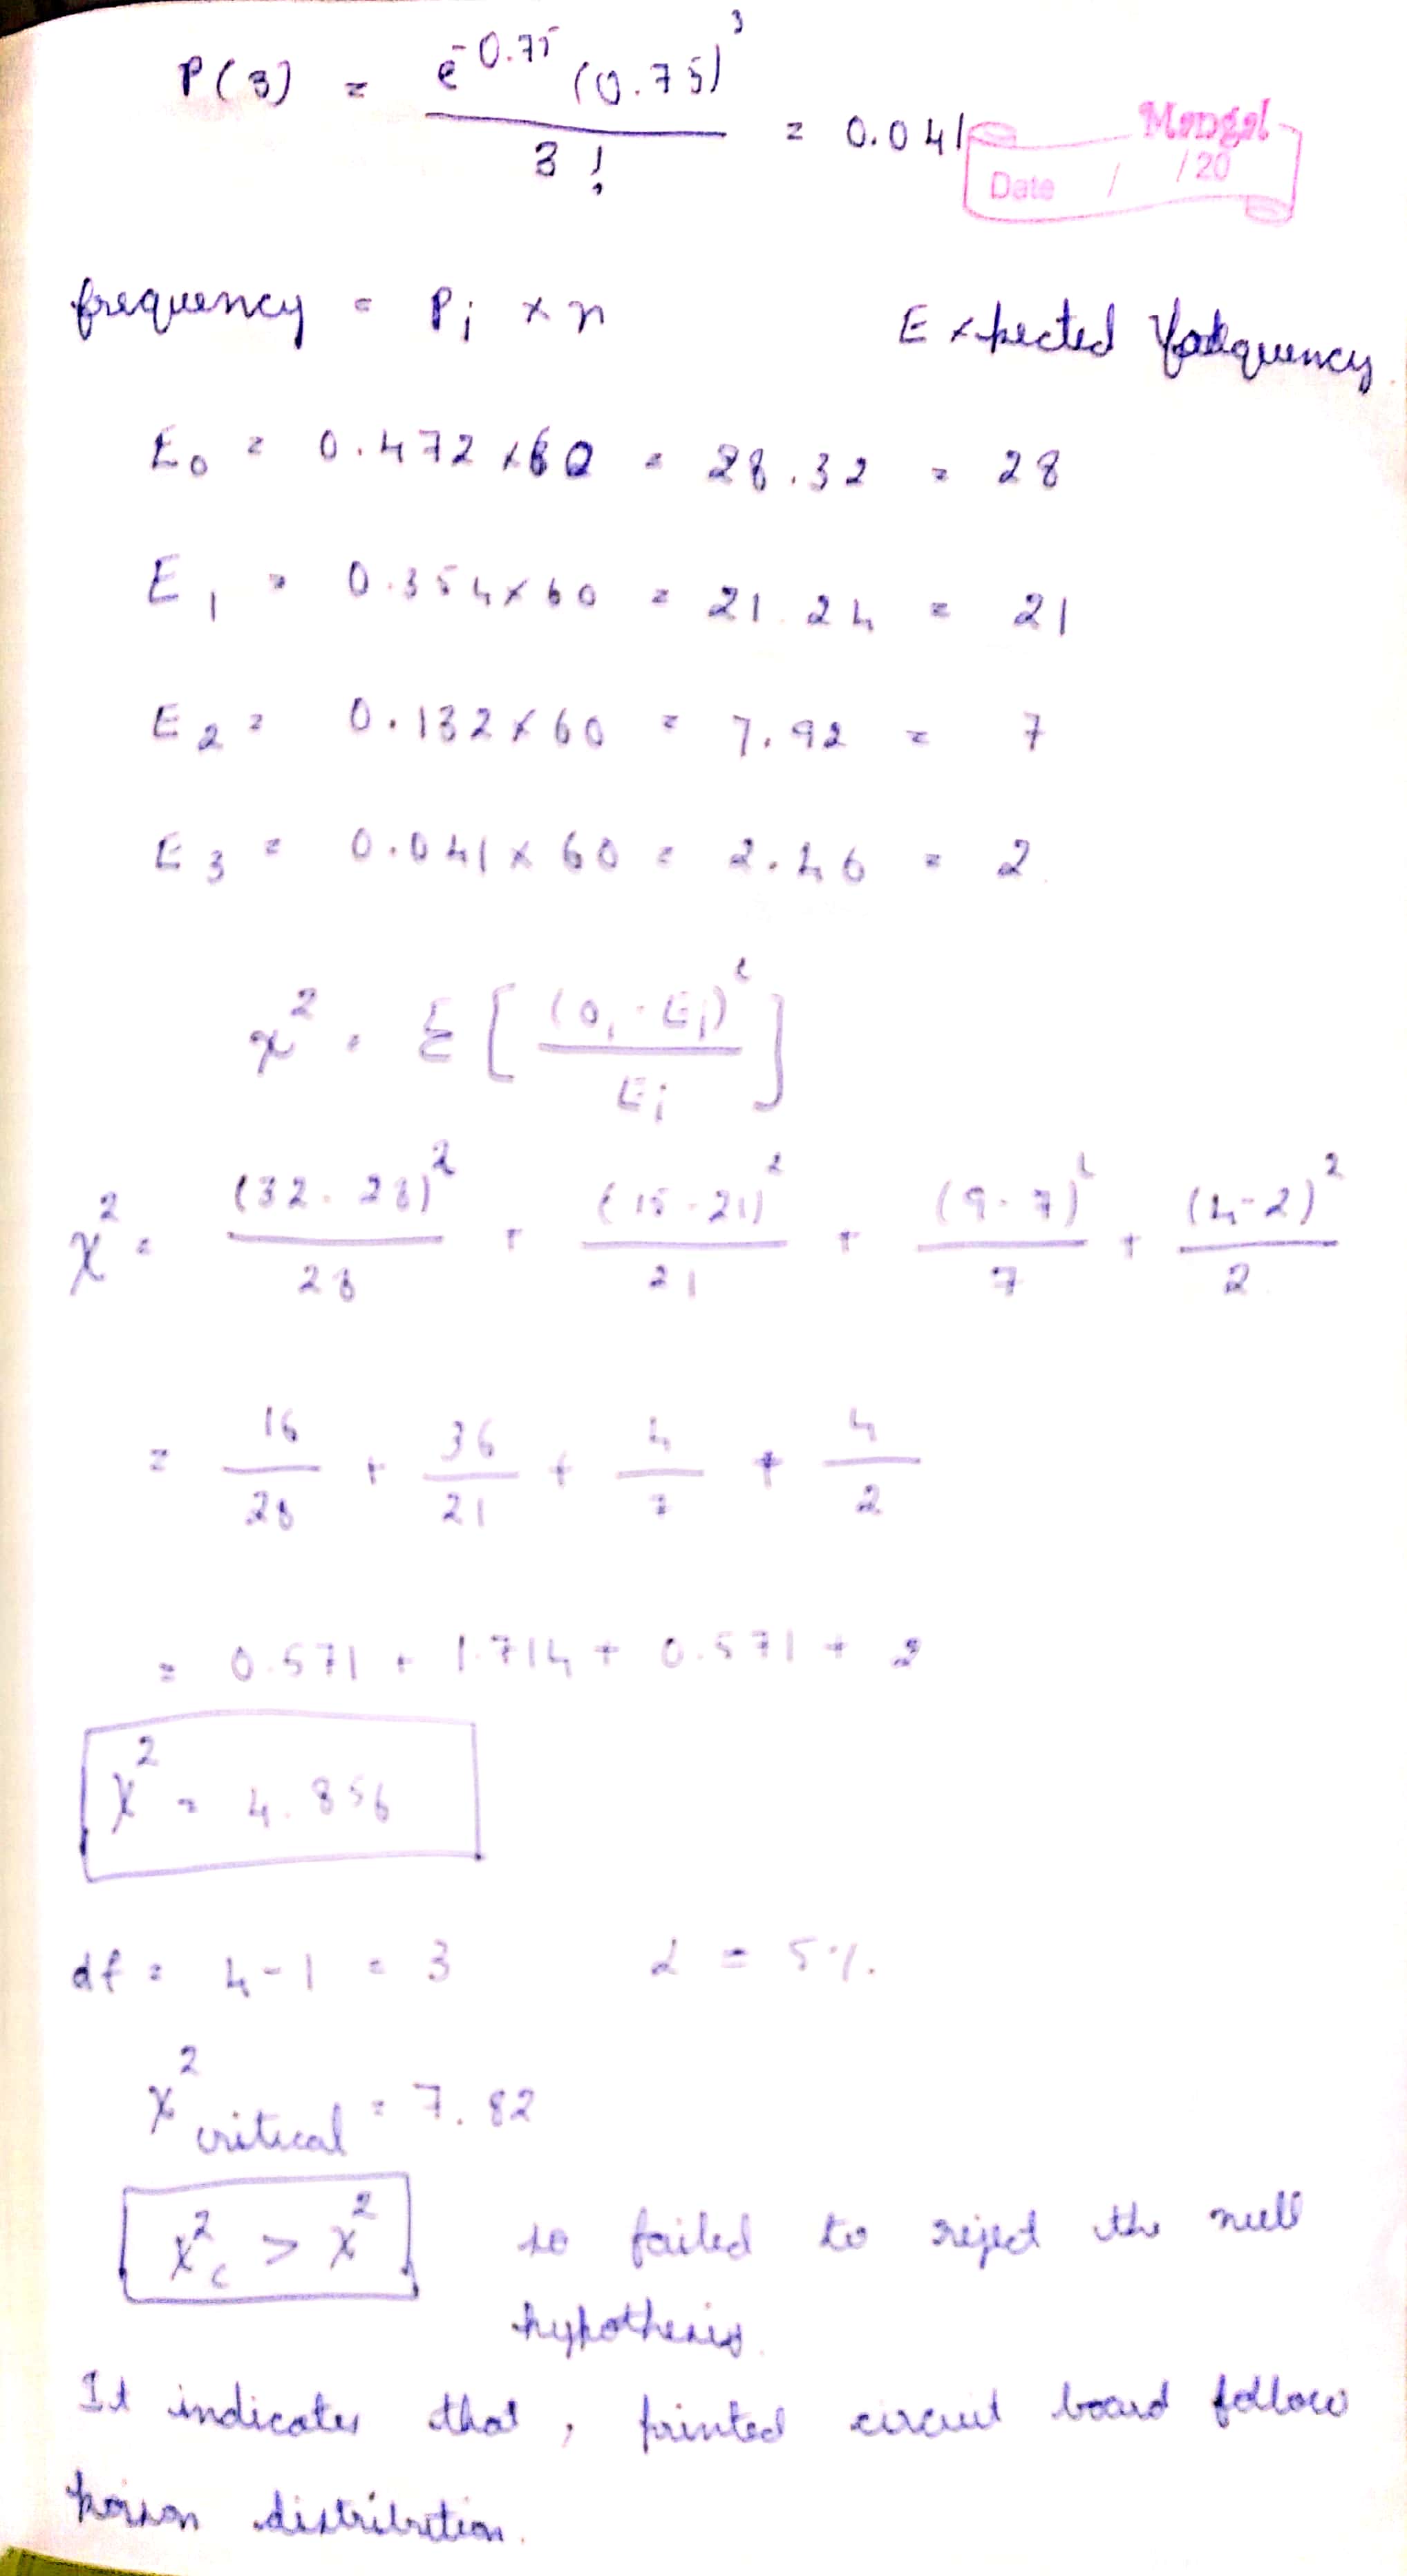 P(3) = e^-0.75 (0.75)^3 / 3! = 0.041
Mangal
Date / /20
frequency = Pi × n
Expected
E0 = 0.472 × 60 = 28.32 = 28
E1 = 0.354 × 60 = 21.24 = 21
E2 = 0.132 × 60 = 7.92 = 7
E3 = 0.041 × 60 = 2.46 = 2
χ² = Σ [ (Oi - Ei)² / Ei ]
χ² = (32 - 28)² / 28 + (15 - 21)² / 21 + (9 - 7)² / 7 + (4 - 2)² / 2
= 16/28 + 36/21 + 4/7 + 4/2
= 0.571 + 1.714 + 0.571 + 2
χ² = 4.856
df = 4 - 1 = 3 α = 5%.
χ² critical = 7.82
χ²c > χ² so failed to reject the null
hypothesis.
It indicates that, printed circuit board follow
poison distribution.